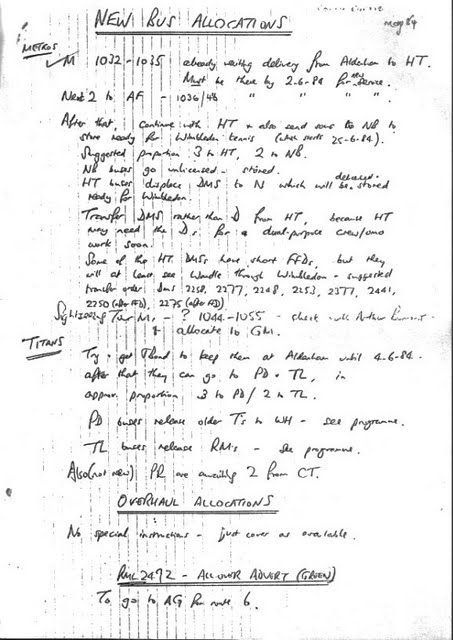 NEW BUS ALLOCATIONS
May 84
METROS
M 1032-1035 already waiting delivery from Aldenham to HT.
Must be there by 2-6-84 for service.
Next 2 to AF - 1036/46 " " " .
After that, continue with HT & also send some to NB to
store ready for Wimbledon tennis (which starts 25-6-84.)
Suggested proportion 3 to HT, 2 to NB.
NB buses go unlicensed - stored.
HT buses displace DMS to N which will be delicensed & stored
ready for Wimbledon.
Transfer DMS rather than D from HT, because HT
may need the Ds for a dual-purpose crew/omo
work soon.
Some of the HT DMSs have short FFDs, but they
will at least see Wandle through Wimbledon - suggested
transfer order DMS 2258, 2277, 2248, 2253, 2377, 2441,
2250 (after FFD), 2275 (after FFD)
Sightseeing Tour Ms - ? 1044-1055 - check with Arthur
& allocate to GM.
TITANS
Try & get to keep them at Aldenham until 4-6-84.
after that they can go to PD & TL, in
approx. proportion 3 to PD / 2 to TL.
PD buses release older T's to WH - see programme.
TL buses release RMs - see programme.
Also (not new) PR are awaiting 2 from CT.
OVERHAUL ALLOCATIONS
No special instructions - just cover as available.
RML 2492 - ALLOVER ADVERT (GREEN)
To go to AG for route 6.